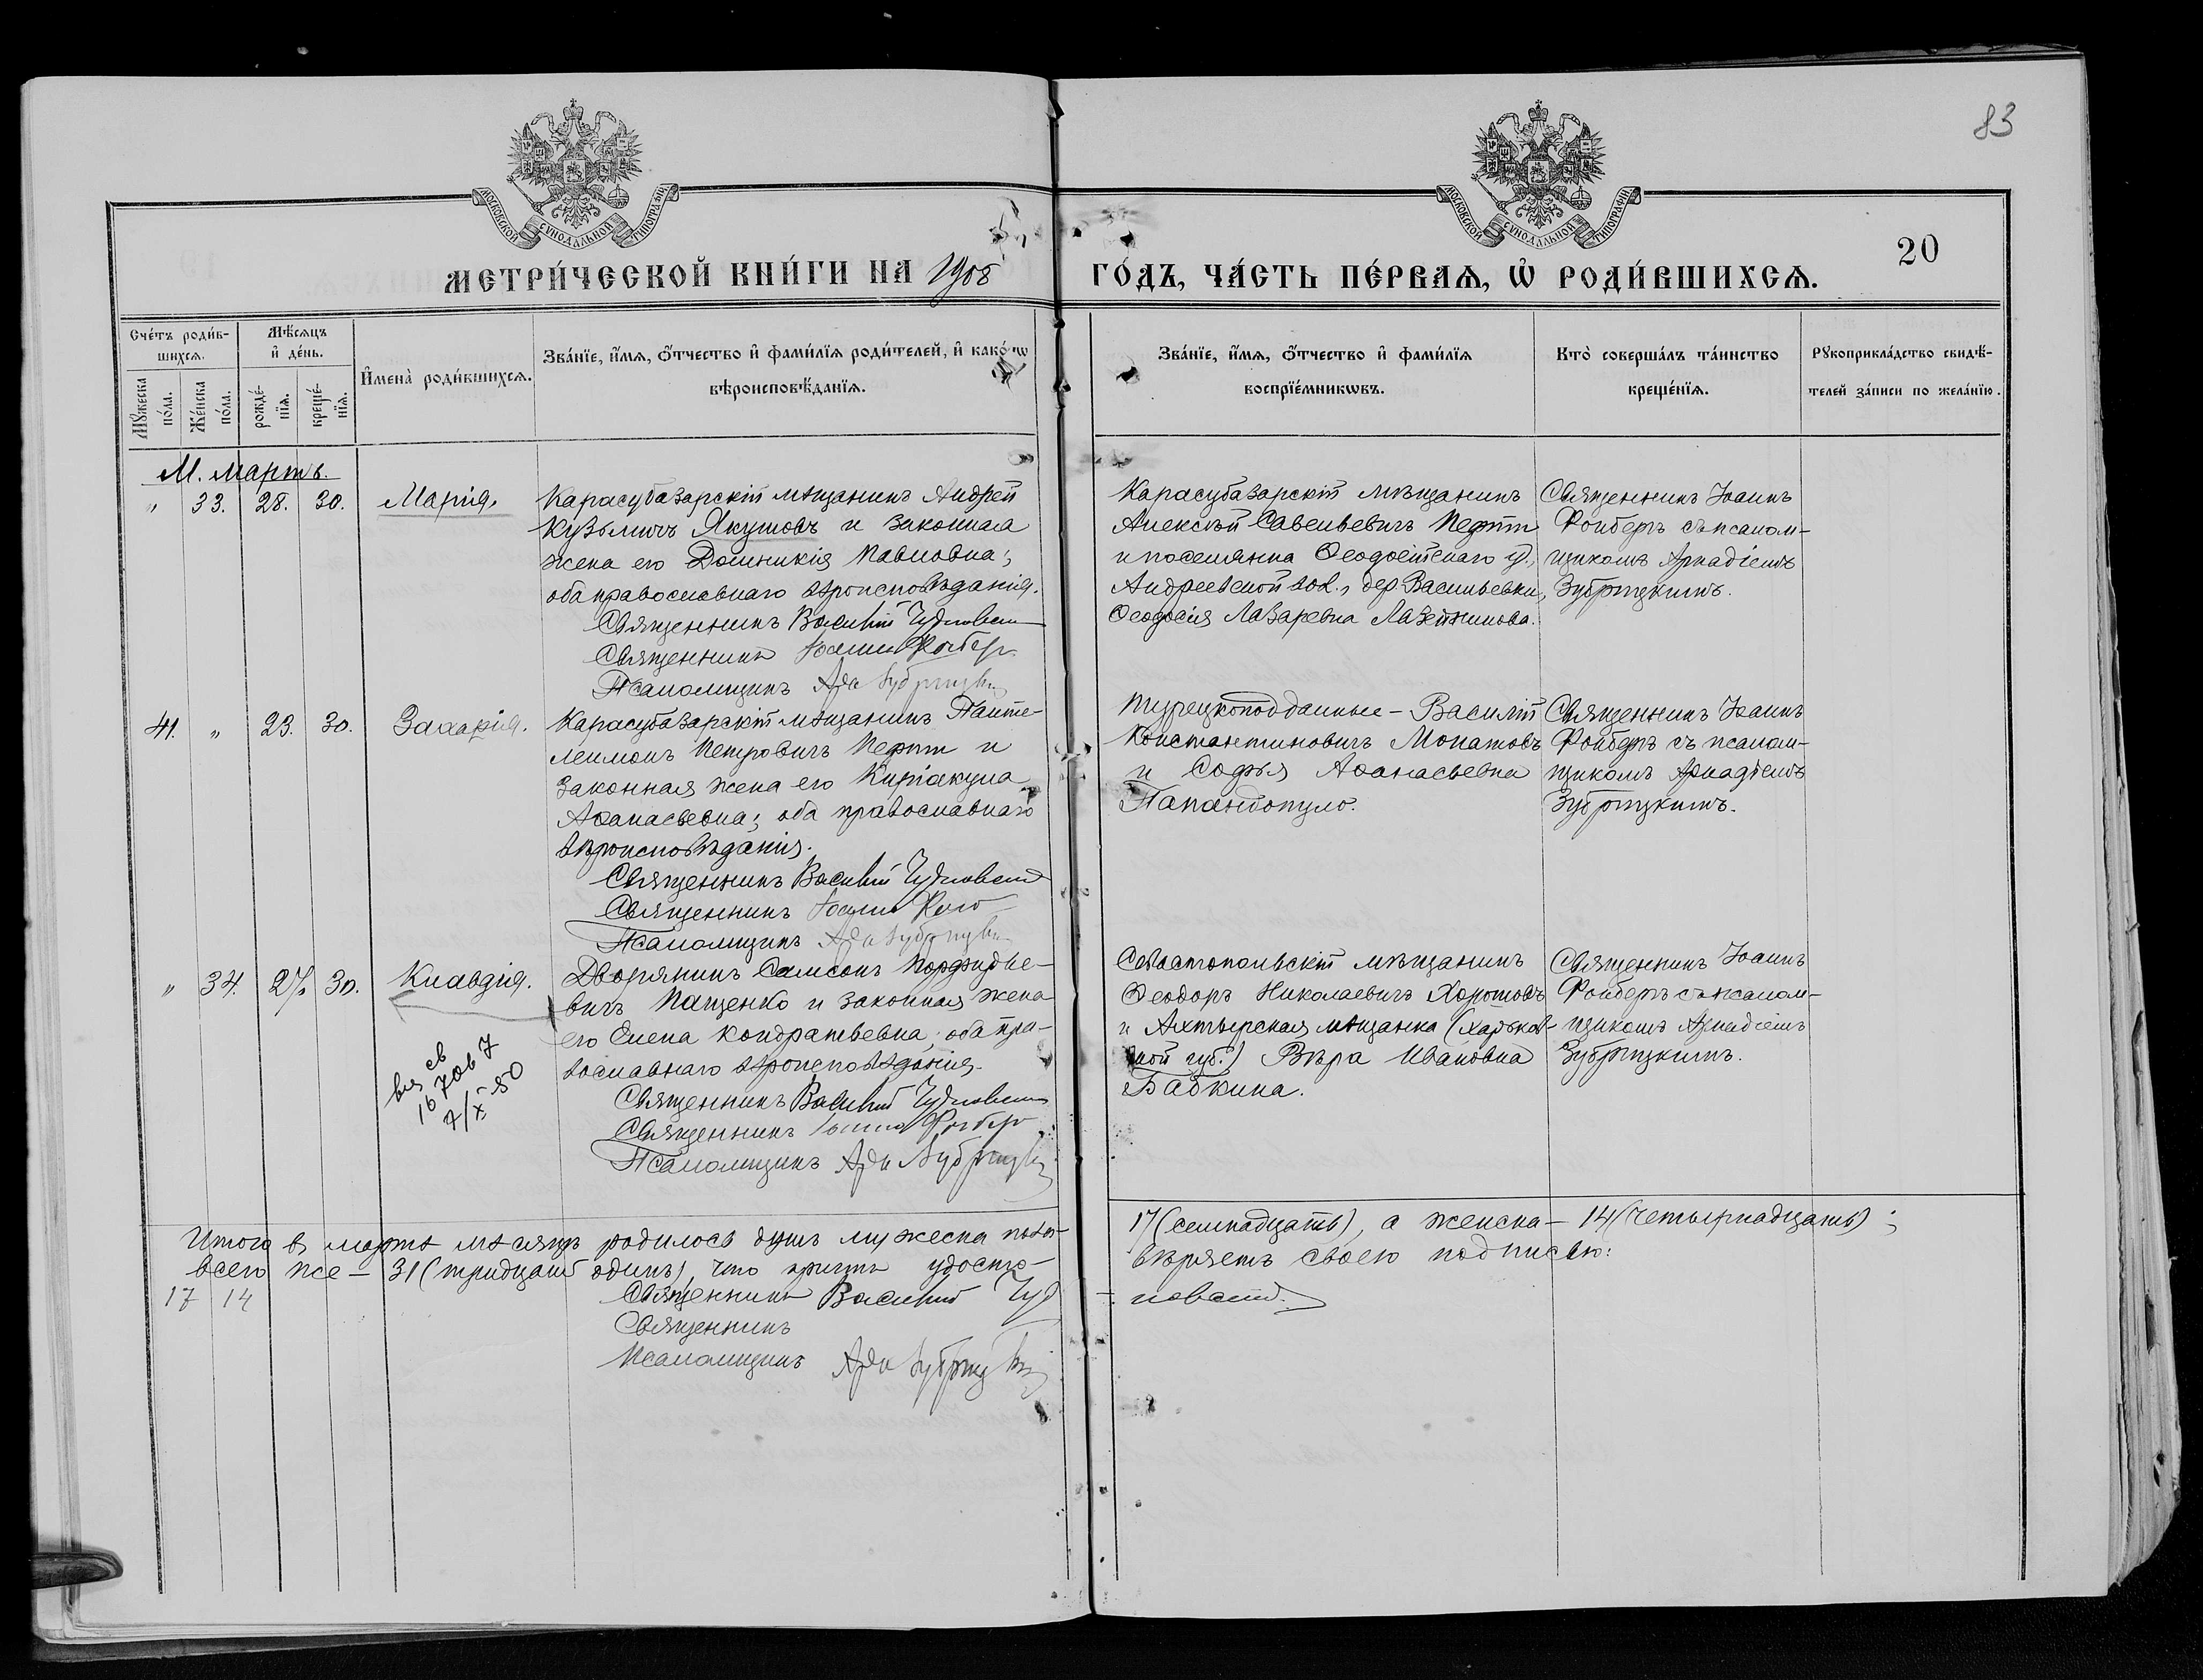 83
МОСКОВСКОЙ СѴНОДАЛЬНОЙ ТИПОГРАФІИ
МОСКОВСКОЙ СѴНОДАЛЬНОЙ ТИПОГРАФІИ
20
МЕТРИ́ЧЕСКОЙ КНИ́ГИ НА 1908 ГО́ДЪ, ЧА́СТЬ ПЕ́РВАѦ, Ѡ҆ РОДИ́ВШИХСѦ.
Сче́тъ роди́в-
шихсѧ.
Мѣ́сѧцъ
и҆ де́нь.
Мꙋ́жеска
по́ла.
Же́нска
по́ла.
рожде́-
нїѧ.
креще́-
нїѧ.
И҆мена̀ роди́вшихсѧ.
Зва́нїе, и҆́мѧ, ѻ҆́тчество и҆ фами́лїѧ роди́телей, и҆ како́гѡ
вѣроисповѣ́данїѧ.
Зва́нїе, и҆́мѧ, ѻ҆́тчество и҆ фами́лїѧ
воспрїе́мникѡвъ.
Кто̀ соверша́лъ та́инство
креще́нїѧ.
Рꙋкоприкла́дство свидѣ́-
телей за́писи по жела́нїю.
М. Мартъ.
" 33. 28. 30. Марія.
Карасубазарскій мѣщанинъ Андрей
Кузьмичъ Якушовъ и законная
жена его Домникія Павловна;
оба православнаго вѣроисповѣданія.
Священникъ Василій Чудновскій
Священникъ Іоаннъ Фонберг
Псаломщикъ Арк Зубрицкій
Карасубазарскій мѣщанинъ
Алексѣй Савельевичъ Пефти
и поселянка Ѳеодосійскаго у.,
Андреевской вол., дер. Васильевки,
Ѳеодосія Лазаревна Лазейникова.
Священникъ Іоаннъ
Фонберъ съ псалом-
щикомъ Аркадіемъ
Зубрицкимъ.
41. " 23. 30. Захарія.
Карасубазарскій мѣщанинъ Панте-
леимонъ Петровичъ Пефти и
законная жена его Киріакула
Аѳанасьевна; оба православнаго
вѣроисповѣданія.
Священникъ Василій Чудновскій
Священникъ Іоаннъ
Псаломщикъ Арк Зубрицкій
Турецкоподданные – Василій
Константиновичъ Монатовъ
и Софья Аѳанасьевна
Папандопуло.
Священникъ Іоаннъ
Фонберъ съ псалом-
щикомъ Аркадіемъ
Зубрицкимъ.
" 34. 27. 30. Клавдія.
Дворянинъ Самсонъ Порфирье-
вичъ Пащенко и законная жена
его Елена Кондратьевна; оба пра-
вославнаго вѣроисповѣданія.
Священникъ Василій Чудновскій
Священникъ Іоаннъ Фонберг
Псаломщикъ Арк Зубрицкій
св
7/X-50
Севастопольскій мѣщанинъ
Ѳеодоръ Николаевичъ Хоротовъ
и Ахтырская мѣщанка (Харьков-
ской губ.) Вѣра Ивановна
Бабкина.
Священникъ Іоаннъ
Фонберъ съ псалом-
щикомъ Аркадіемъ
Зубрицкимъ.
Итого в мартѣ мѣсяцѣ родилось душъ мужеска пола – 17 (семнадцать), а женска – 14 (четырнадцать);
всего же – 31 (тридцать одинъ), что причтъ удосто-вѣряетъ своею подписью:
17 14
Священникъ Василій Чуд-новскій.
Священникъ
Псаломщикъ Арк Зубрицкій